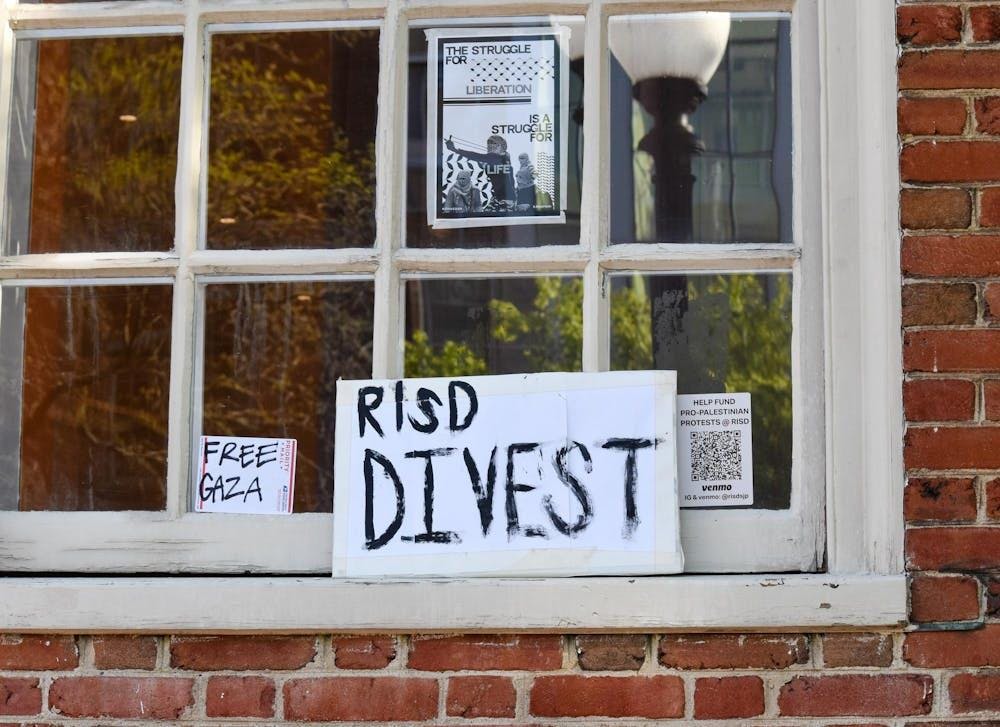 THE STRUGGLE
FOR
LIBERATION
IS A
STRUGGLE
FOR
LIFE
RISD
DIVEST
FREE
GAZA
PRIORITY
MAIL
HELP FUND
PRO-PALESTINIAN
PROTESTS @ RISD
venmo
IG & venmo: @risdsjp